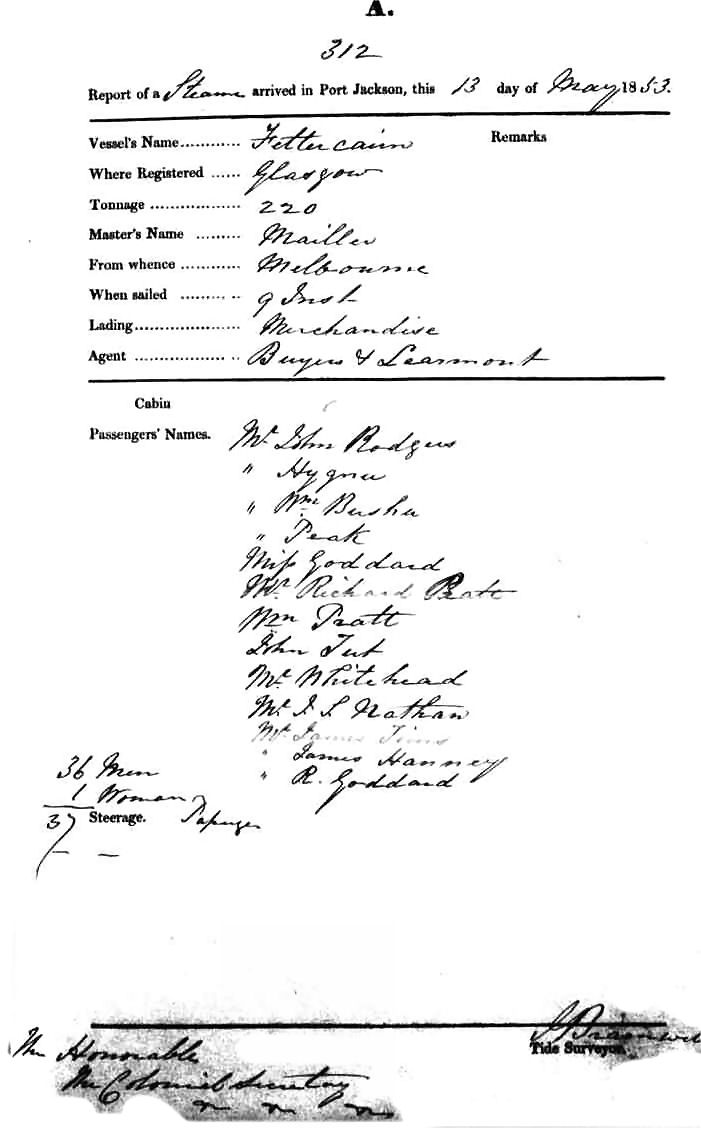 A.
312
Report of a Steamer arrived in Port Jackson, this 13 day of May 1853.
Vessel's Name............ Fettercairn Remarks
Where Registered ...... Glasgow
Tonnage .................. 220
Master's Name ......... Mailler
From whence ............ Melbourne
When sailed ........... 9 Inst
Lading..................... Merchandise
Agent ..................... Buyers & Learmont
Cabin
Passengers' Names. Mr. John Rodgers
" Hygner
" Wm Busher
" Peak
Miss Goddard
Mr. Richard Pratt
Wm Pratt
John Tut
Mr. Whitehead
Mr. I. S. Nathan
Mr. James Tims
" James Hanney
" R. Goddard
36 Men
1 Woman
37 Steerage. Passenger
The Honorable
Tide Surveyor.
The Colonial Secretary